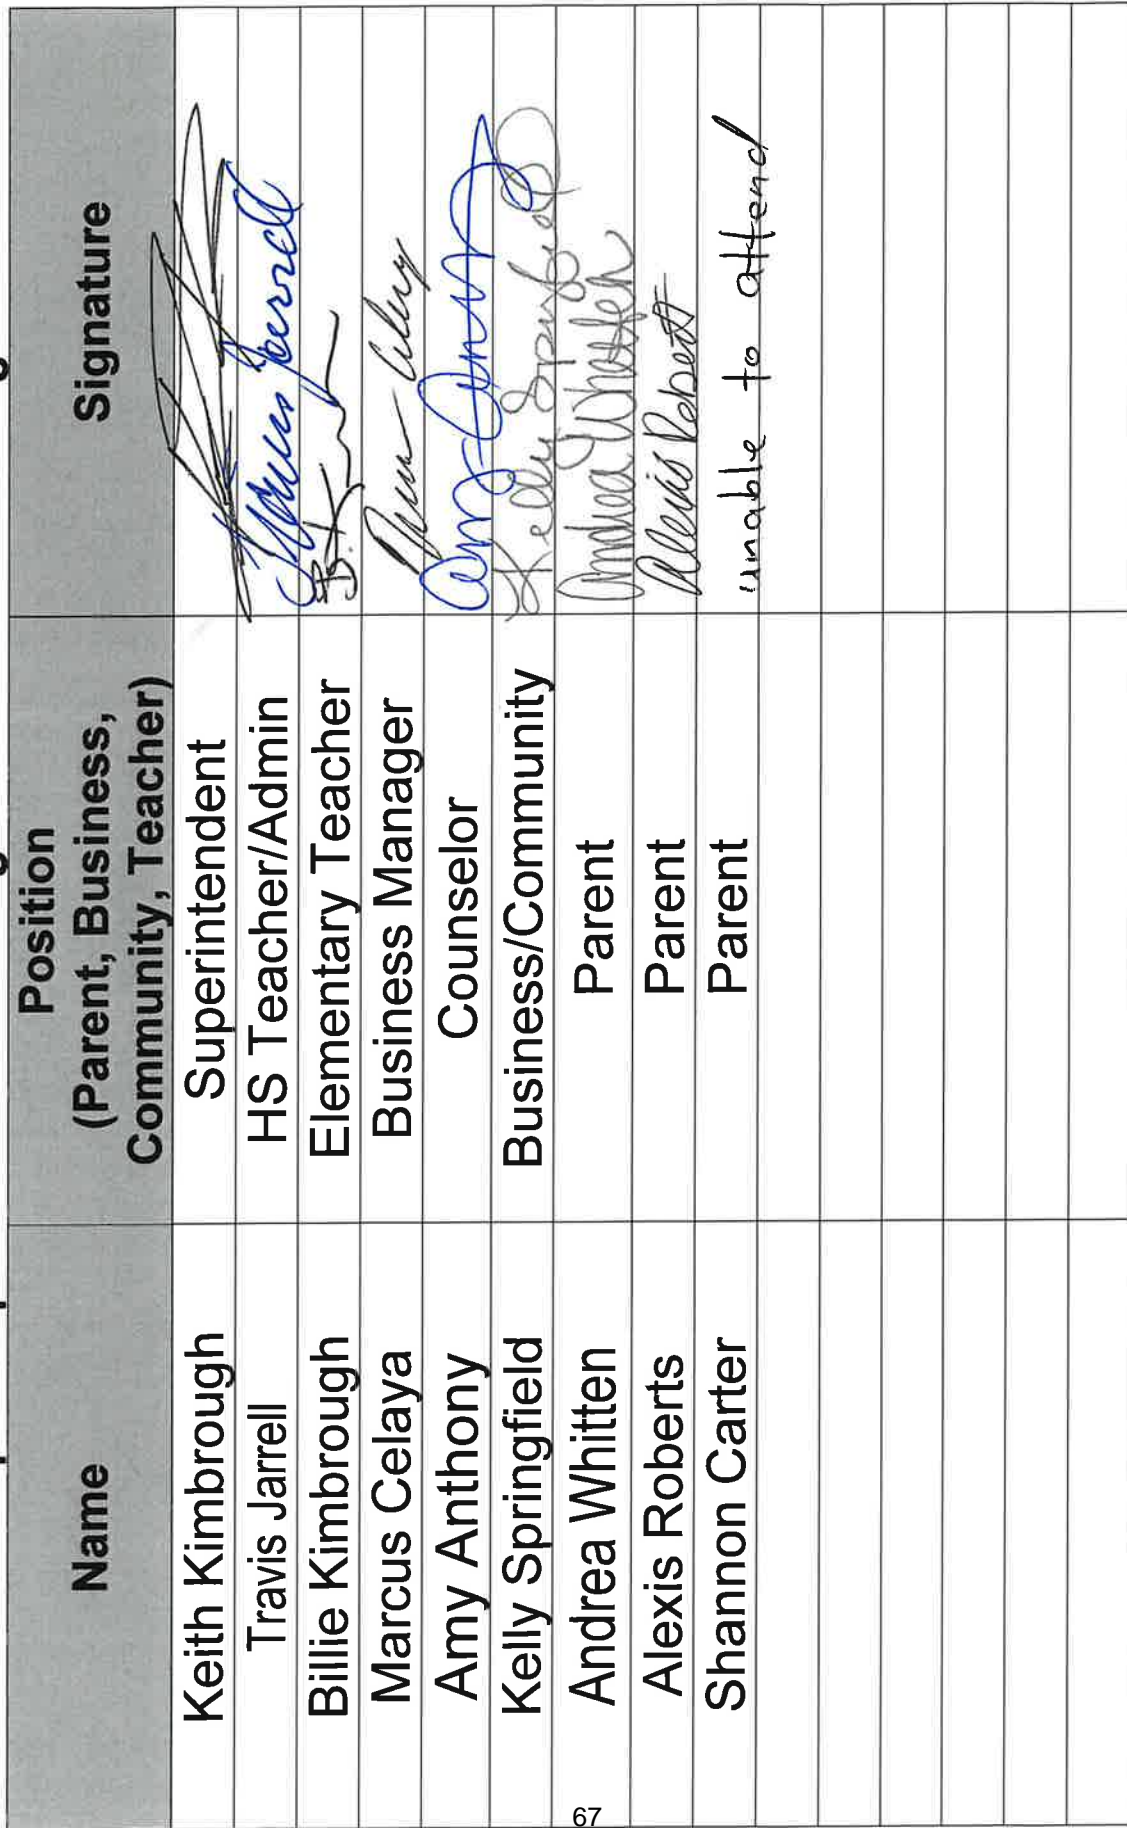 Name
Position
(Parent, Business,
Community, Teacher)
Signature
Keith Kimbrough Superintendent
Travis Jarrell HS Teacher/Admin Travis Jarrell
Billie Kimbrough Elementary Teacher B. Kim
Marcus Celaya Business Manager
Amy Anthony Counselor
Kelly Springfield Business/Community Kelly Springfield
Andrea Whitten Parent Andrea Whitten
Alexis Roberts Parent Alexis Roberts
Shannon Carter Parent unable to attend
67